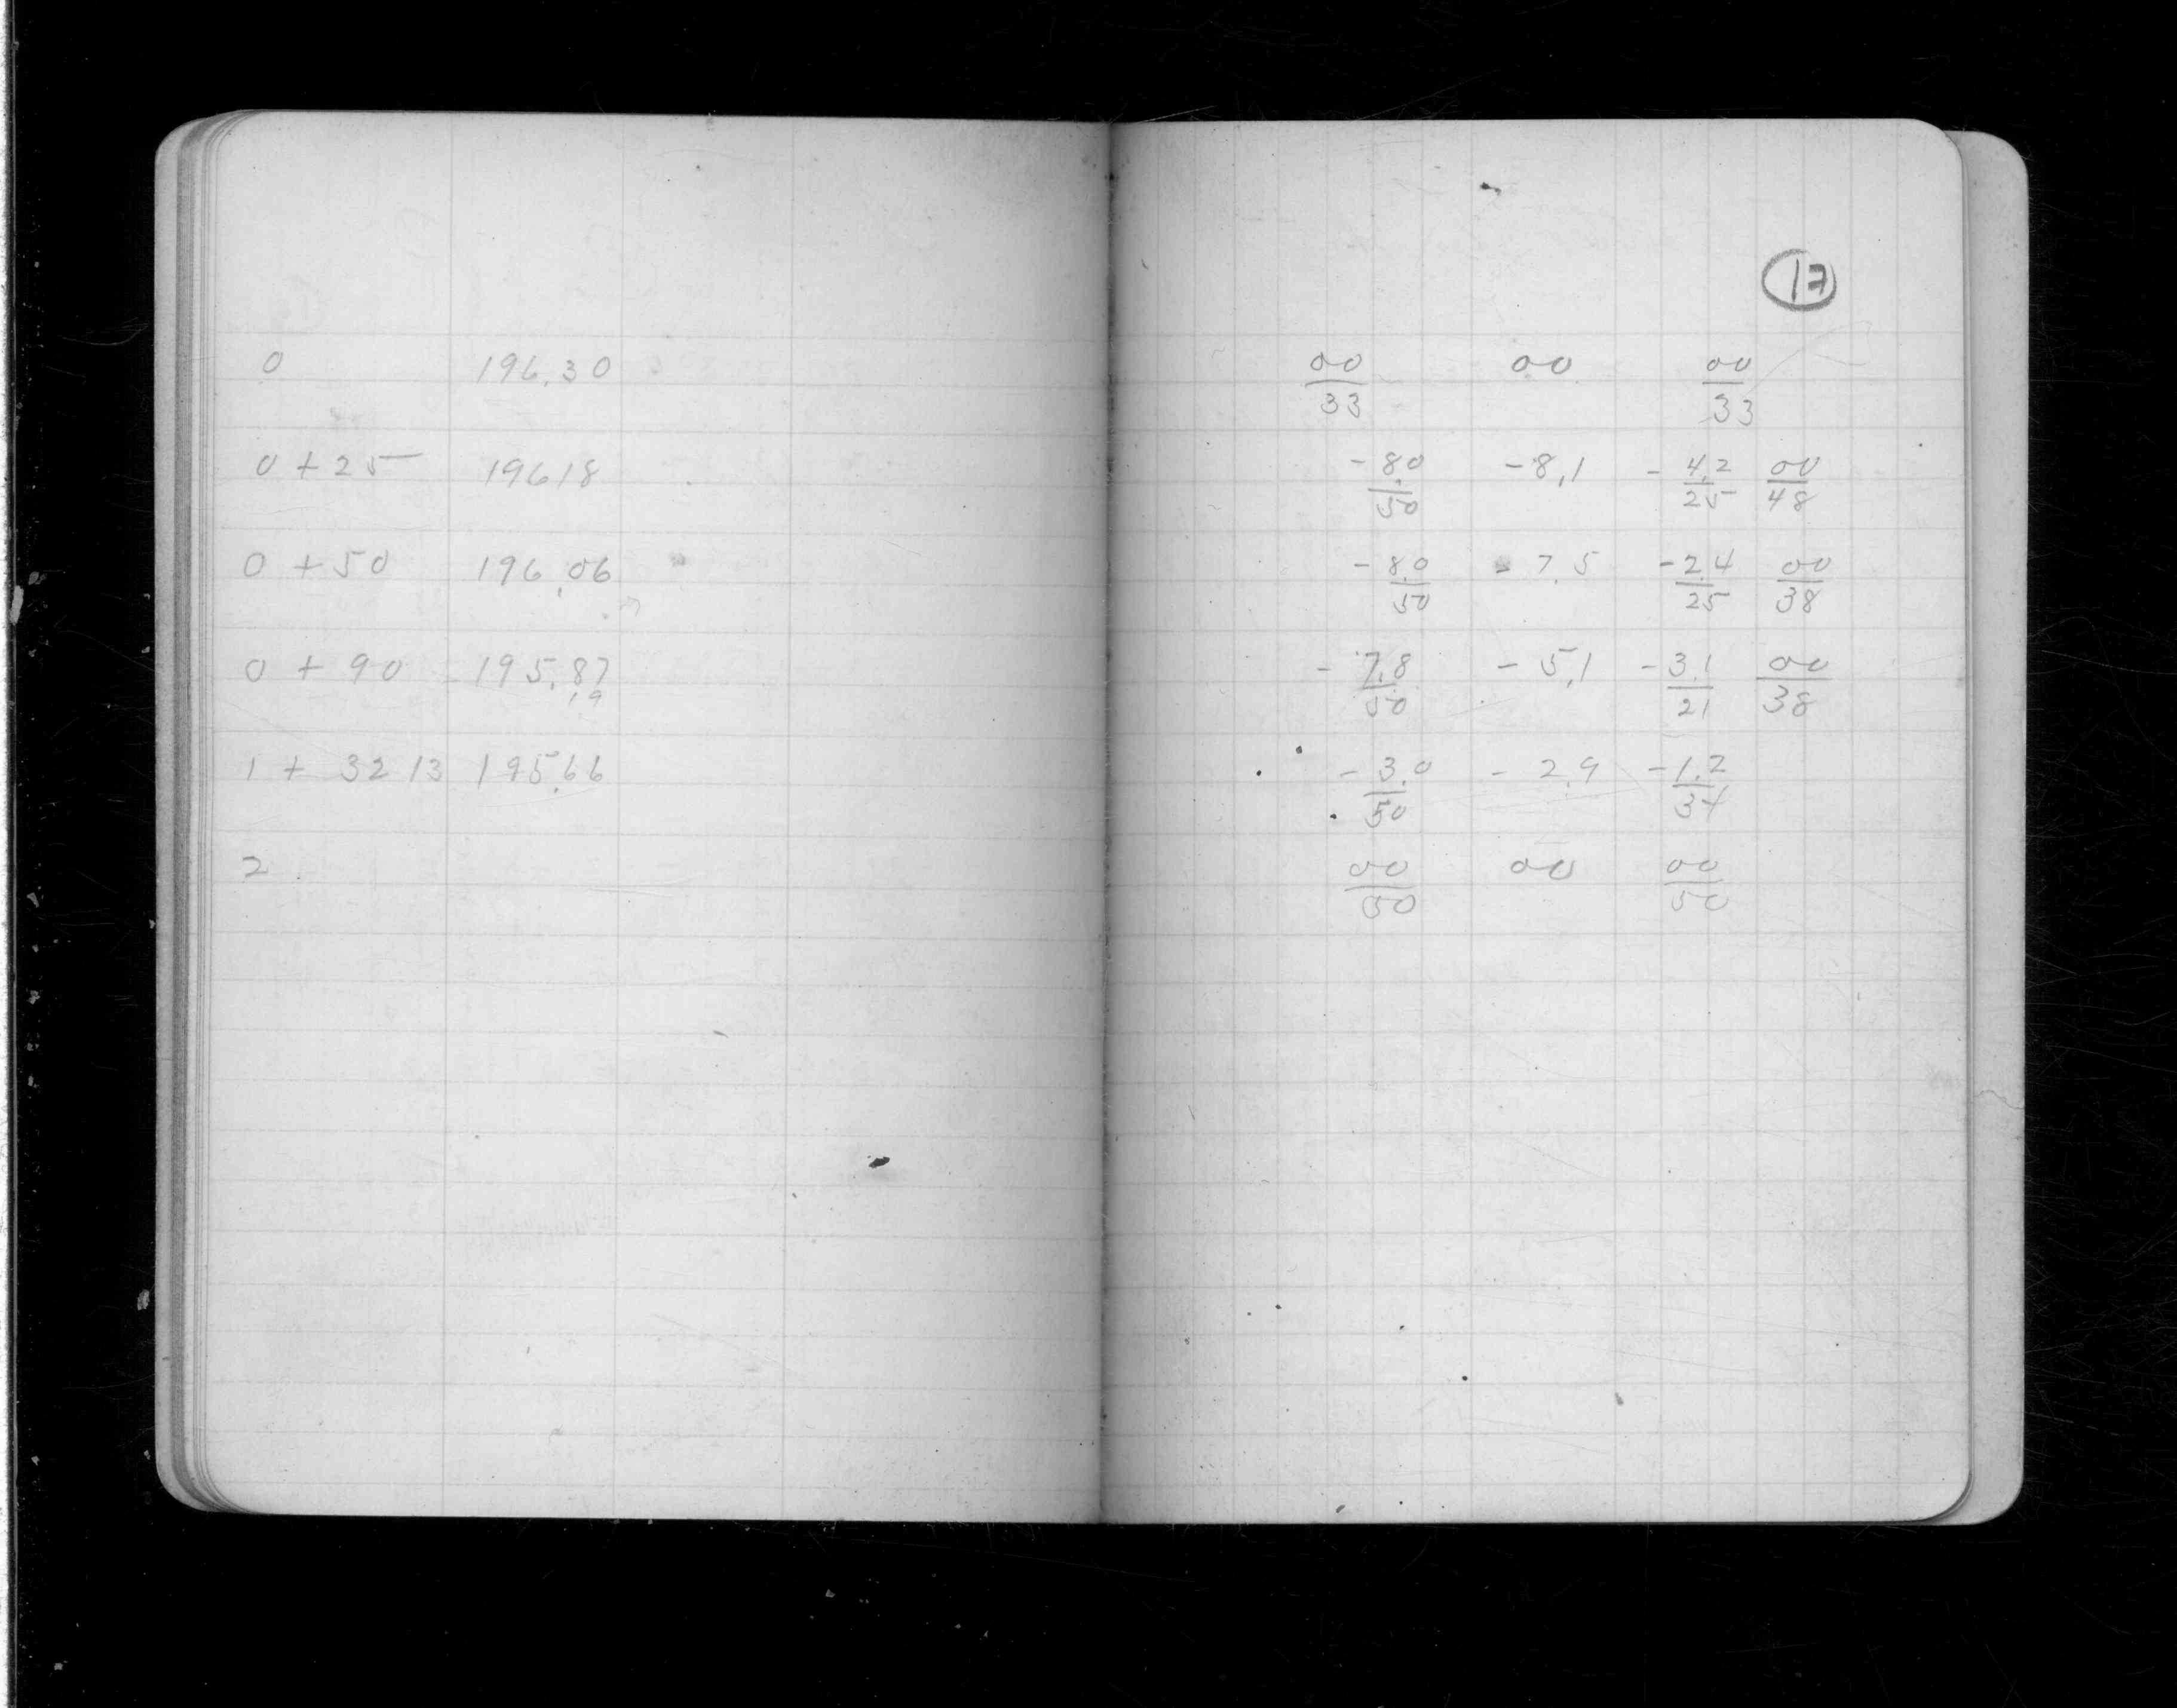 17
0 196.30 00/33 00 00/33
0 + 25 196 18 -8.0/50 -8.1 -4.2/25 00/48
0 + 50 196.06 -8.0/50 -7.5 -2.4/25 00/38
0 + 90 195.87 -7.8/50 -5.1 -3.1/21 00/38
.19
1 + 32 13 195.66 -3.0/50 -2.9 -1.2/34
2 00/50 00 00/50